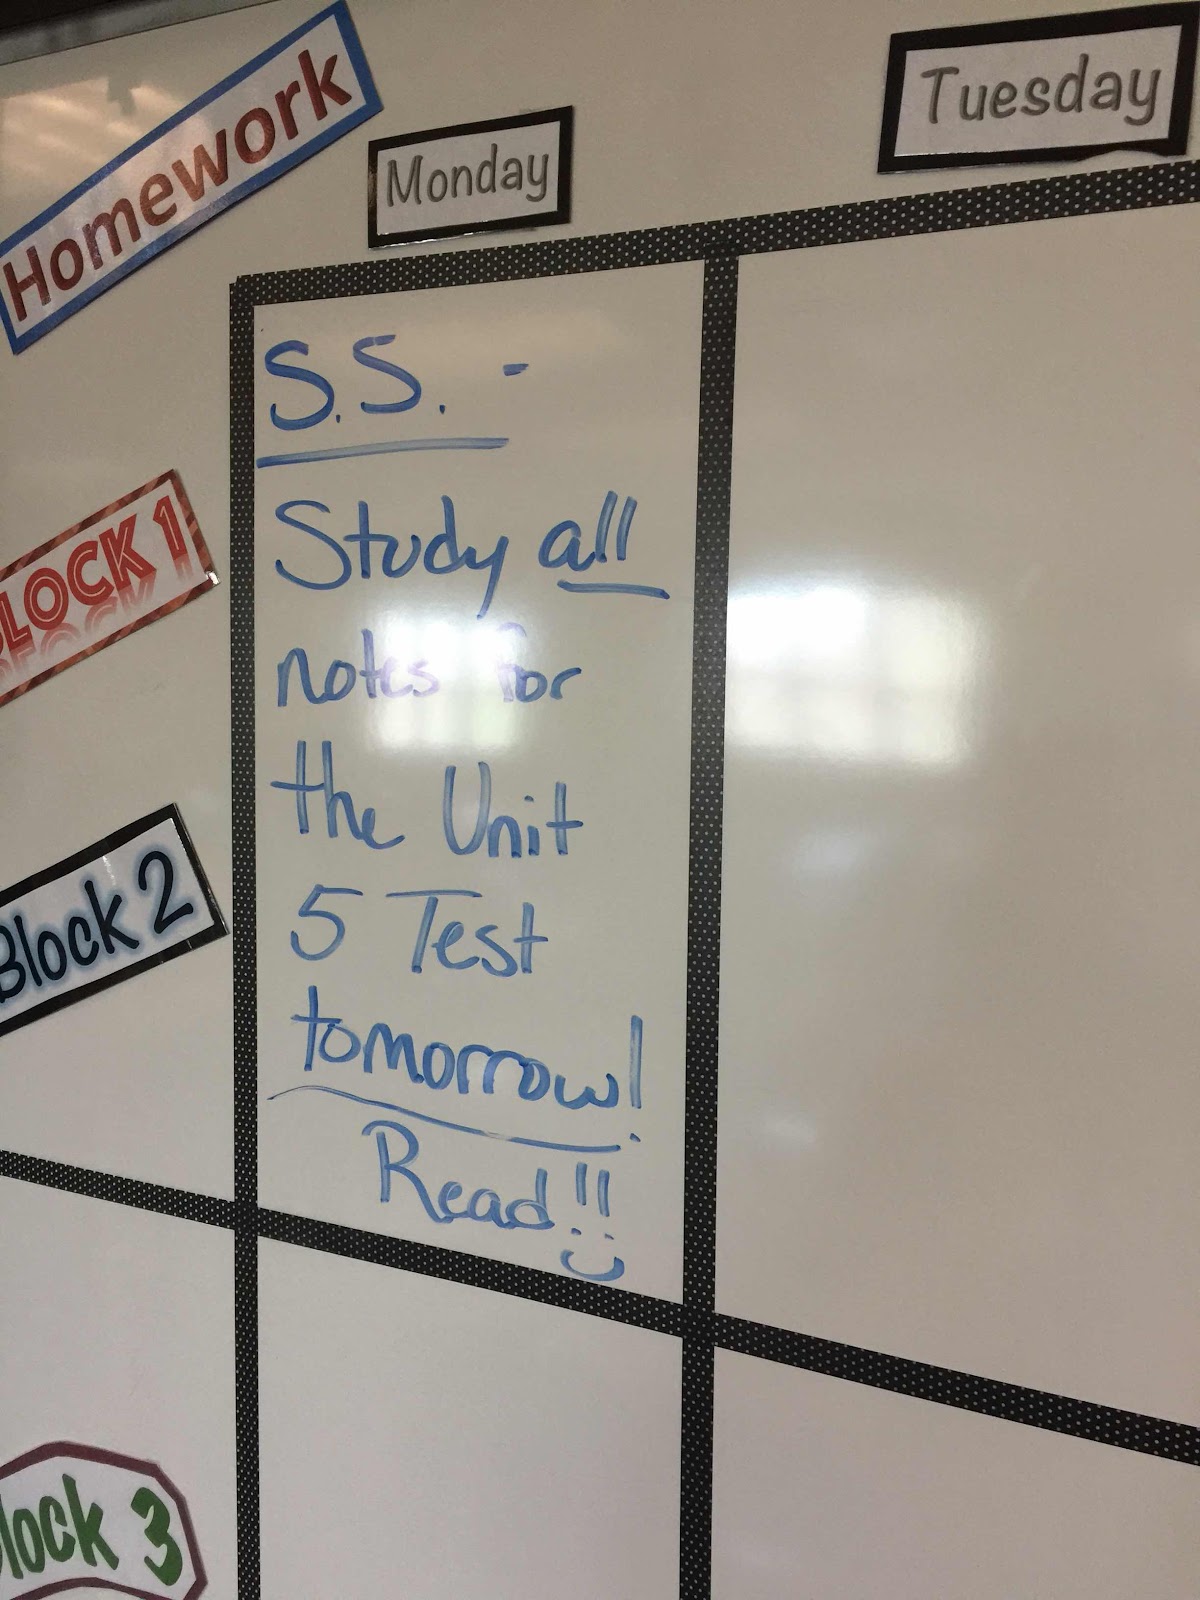 Homework
Monday
Tuesday
BLOCK 1
Block 2
S.S. -
Study all
notes for
the Unit
5 Test
tomorrow!
Read!!
Block 3